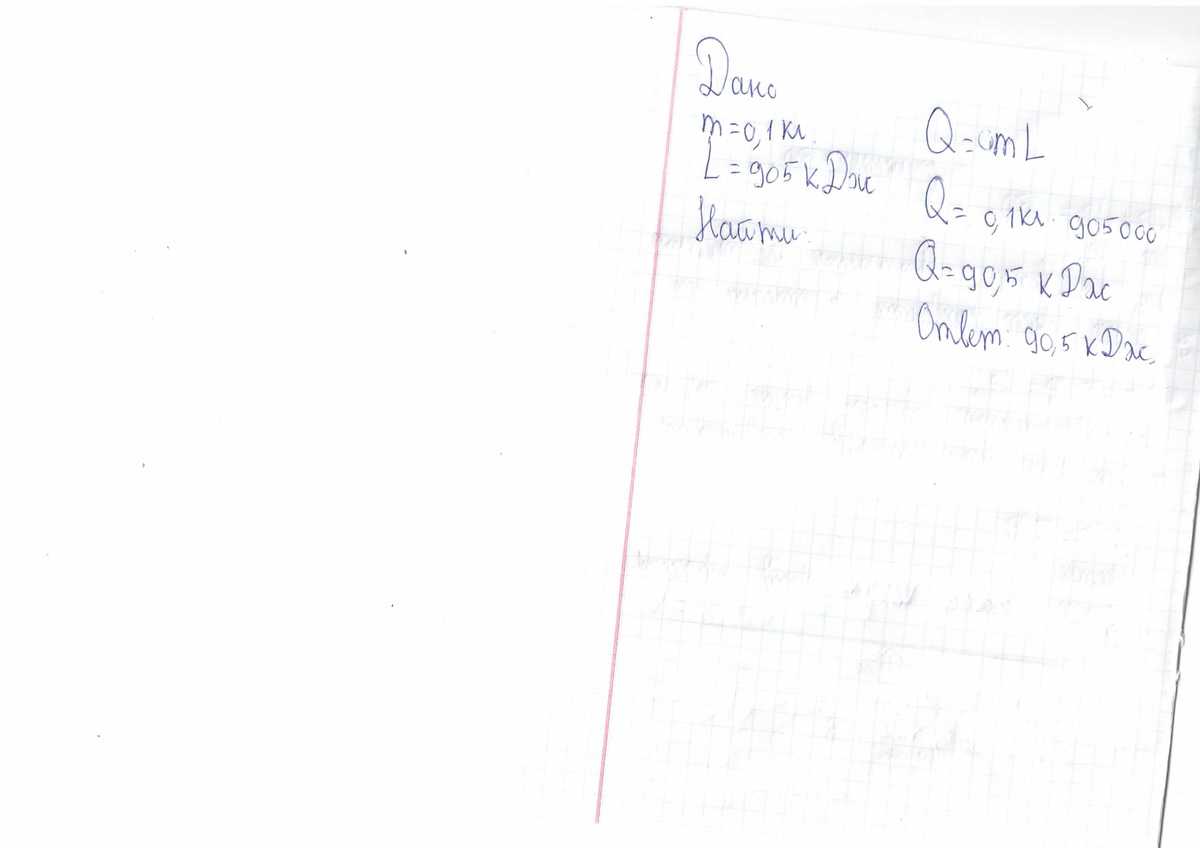 Дано
m=0,1 кг.
L = 905 кДж
Найти:
Q = mL
Q = 0,1 кг · 905000
Q = 90,5 кДж
Ответ: 90,5 кДж.